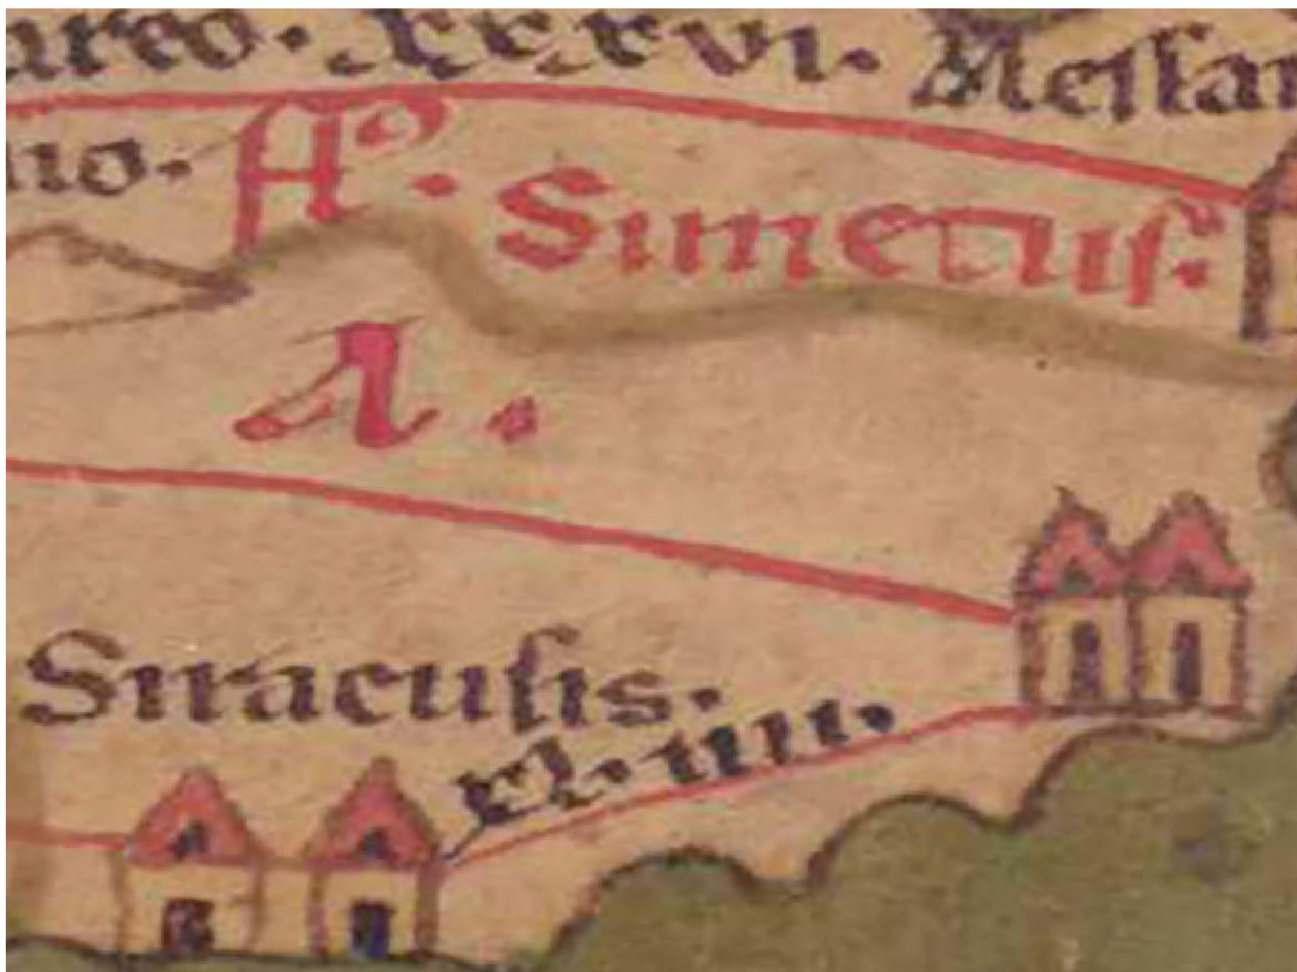 areo. xxxvi. Meſſa
no. Fl⁹. Simetuſ.
A.
Siracuſis.
xl.iiii.